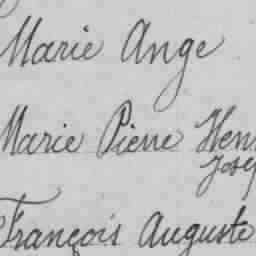 Marie Ange
Marie Pierre
François Auguste